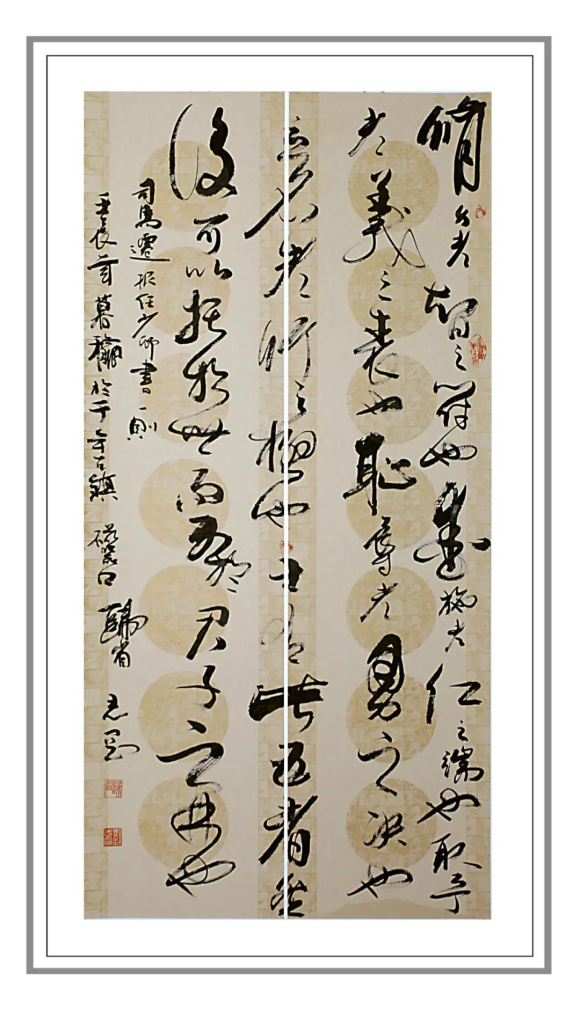 脩身者智之符也愛施者仁之端也取予
者義之表也恥辱者勇之决也
立名者行之極也士有此五者然
後可以托於世而列於君子之林也
司馬遷报任少卿書一則
壬辰 暮 於千年古鎮 磁器口